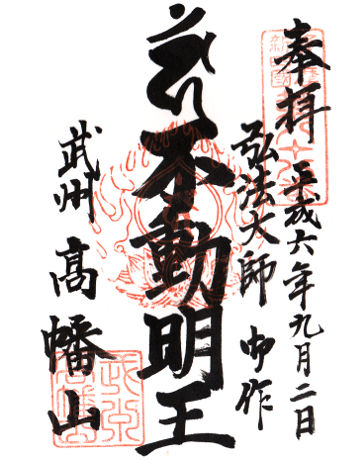 奉拝
平成六年九月二日
弘法大師 御作
不動明王
武州 高幡山